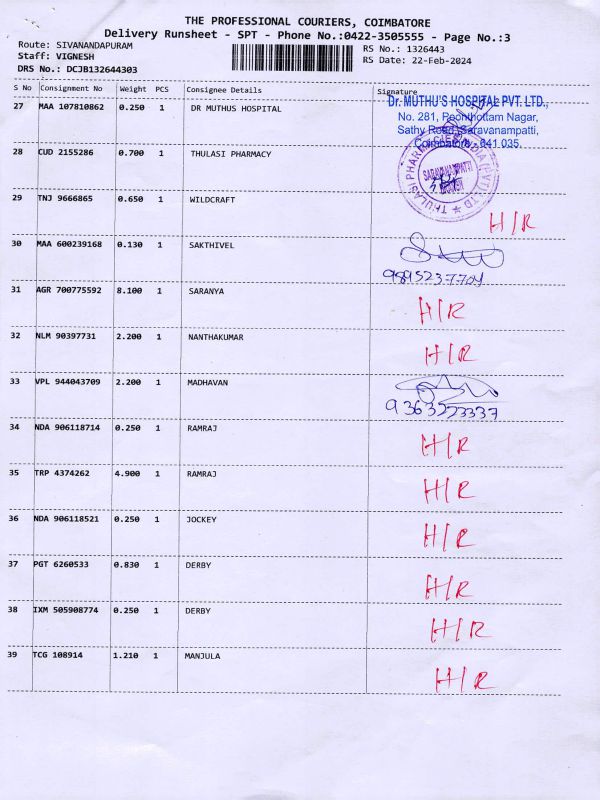 THE PROFESSIONAL COURIERS, COIMBATORE
Delivery Runsheet - SPT - Phone No.:0422-3505555 - Page No.:3
Route: SIVANANDAPURAM
Staff: VIGNESH
DRS No.: DCJB132644303
RS No.: 1326443
RS Date: 22-Feb-2024
S No Consignment No Weight PCS Consignee Details Signature
27 MAA 107810862 0.250 1 DR MUTHUS HOSPITAL
Dr. MUTHU'S HOSPITAL PVT. LTD.,
No. 281, Poonthottam Nagar,
Sathy Road, Saravanampatti,
Coimbatore - 641 035.
28 CUD 2155286 0.700 1 THULASI PHARMACY
THULASI PHARMACIES INDIA (PVT) LTD
SARAVANAMPATTI
29 TNJ 9666865 0.650 1 WILDCRAFT H/R
30 MAA 600239168 0.130 1 SAKTHIVEL
9895237704
31 AGR 700775592 8.100 1 SARANYA H/R
32 NLM 90397731 2.200 1 NANTHAKUMAR H/R
33 VPL 944043709 2.200 1 MADHAVAN
9363223337
34 NDA 906118714 0.250 1 RAMRAJ H/R
35 TRP 4374262 4.900 1 RAMRAJ H/R
36 NDA 906118521 0.250 1 JOCKEY H/R
37 PGT 6260533 0.830 1 DERBY H/R
38 IXM 505908774 0.250 1 DERBY H/R
39 TCG 108914 1.210 1 MANJULA H/R